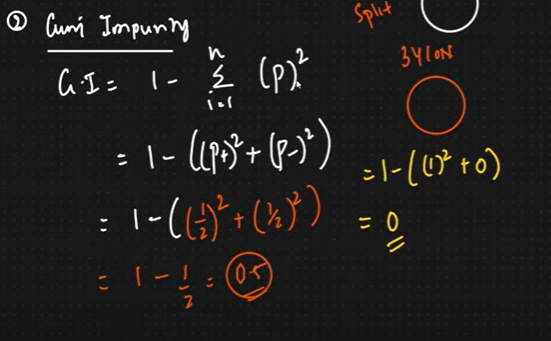 ② Gini Impurity
G.I = 1 - n Σ i=1 (p)²
= 1 - ((p+)² + (p-)²)
= 1 - ((1/2)² + (1/2)²)
= 1 - 1/2 = 0.5
Split
3Y|0N
= 1 - ((1)² + 0)
= 0